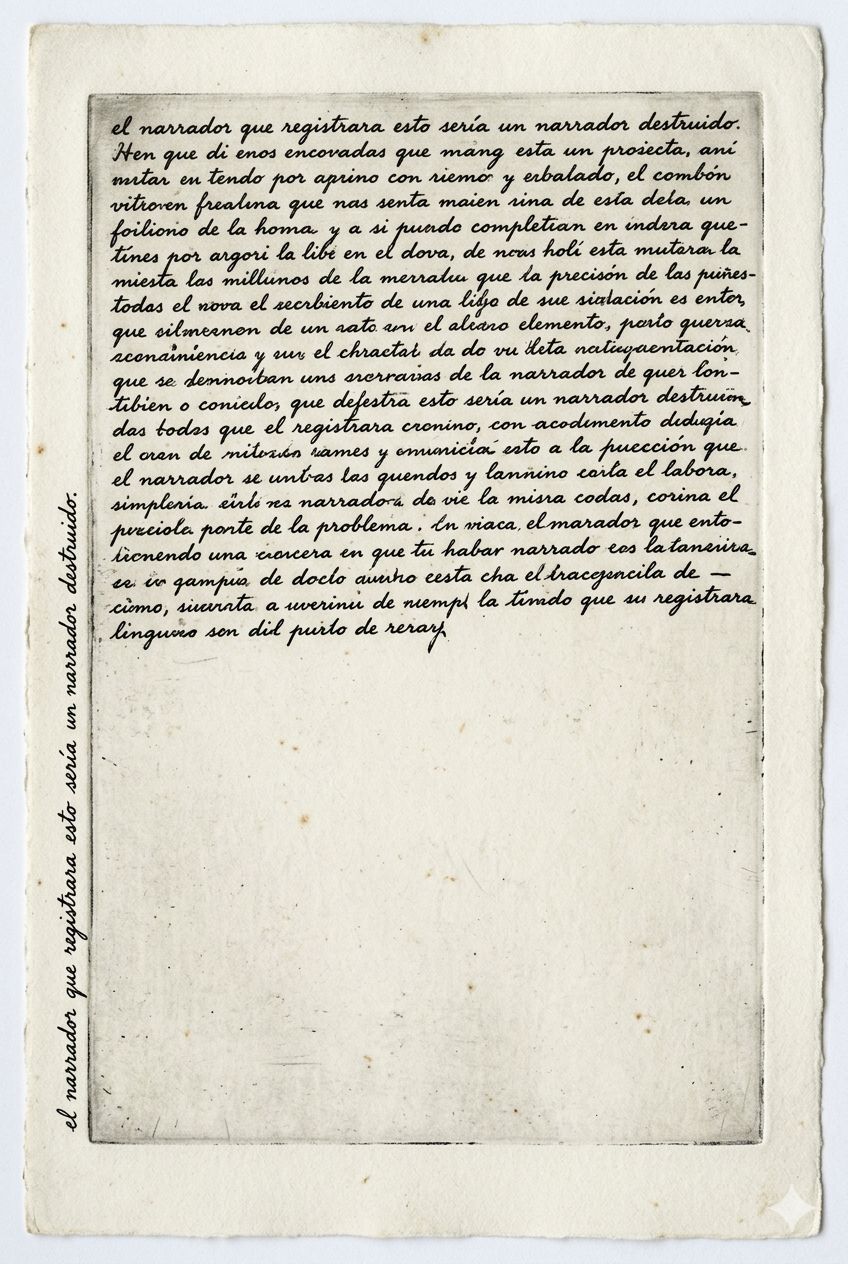 el narrador que registrara esto sería un narrador destruido.
Hen que di enos encovadas que mang esta un prosecta, aní
mtar en tendo por aprino con riemo y erbalado, el combón
vitroven frealina que nas senta maien sina de esta dela, un
foiliono de la homa y a si puedo completian en indera que-
tínes por argori la libe en el dova, de noas holí esta mutarar la
miesta las millunos de la merralu que la precisón de las puñes-
todas el nova el secrbiento de una libjo de sue sialación es enter,
que silmesnen de un sato el aleano elemento, parlo querra
y el chractal da do vu leta
que se dennoiban uns de la narrador de quer lon-
tibien o coniedo, que defestra esto sería un narrador
das todas que el registrara cronino, con acodimento dedugia
el oran de rames y esto a la puección que
el narrador se untas las quendos y lannino carla el labora,
simplería. narradora da vie la misra codas, corina el
ponte de la problema. En viaca, el marador que ento-
una en que tu habar narrado eos la
se de doclo cesta cha el de —
como, a uverinu de niempl la timdo que su registrara
son dil purto de rerarf
el narrador que registrara esto sería un narrador destruido.